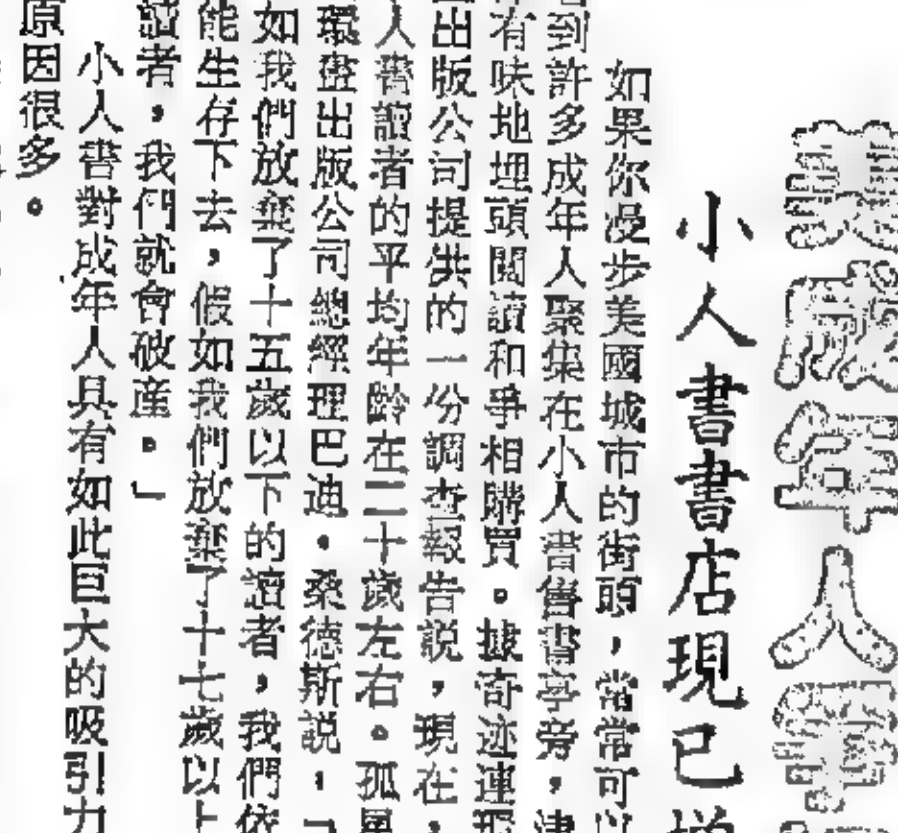 美成年人爭
小人書書店現已增
如果你漫步美國城市的街頭，常常可以
看到許多成年人聚集在小人書售書亭旁，津
有味地埋頭閱讀和爭相購買。據奇迹連環
出版公司提供的一份調查報告説，現在，
人書讀者的平均年齡在二十歲左右。孤星
環畫出版公司總經理巴迪・桑德斯説：「
如我們放棄了十五歲以下的讀者，我們依
能生存下去，假如我們放棄了十七歲以上
讀者，我們就會破産。」
小人書對成年人具有如此巨大的吸引力
原因很多。